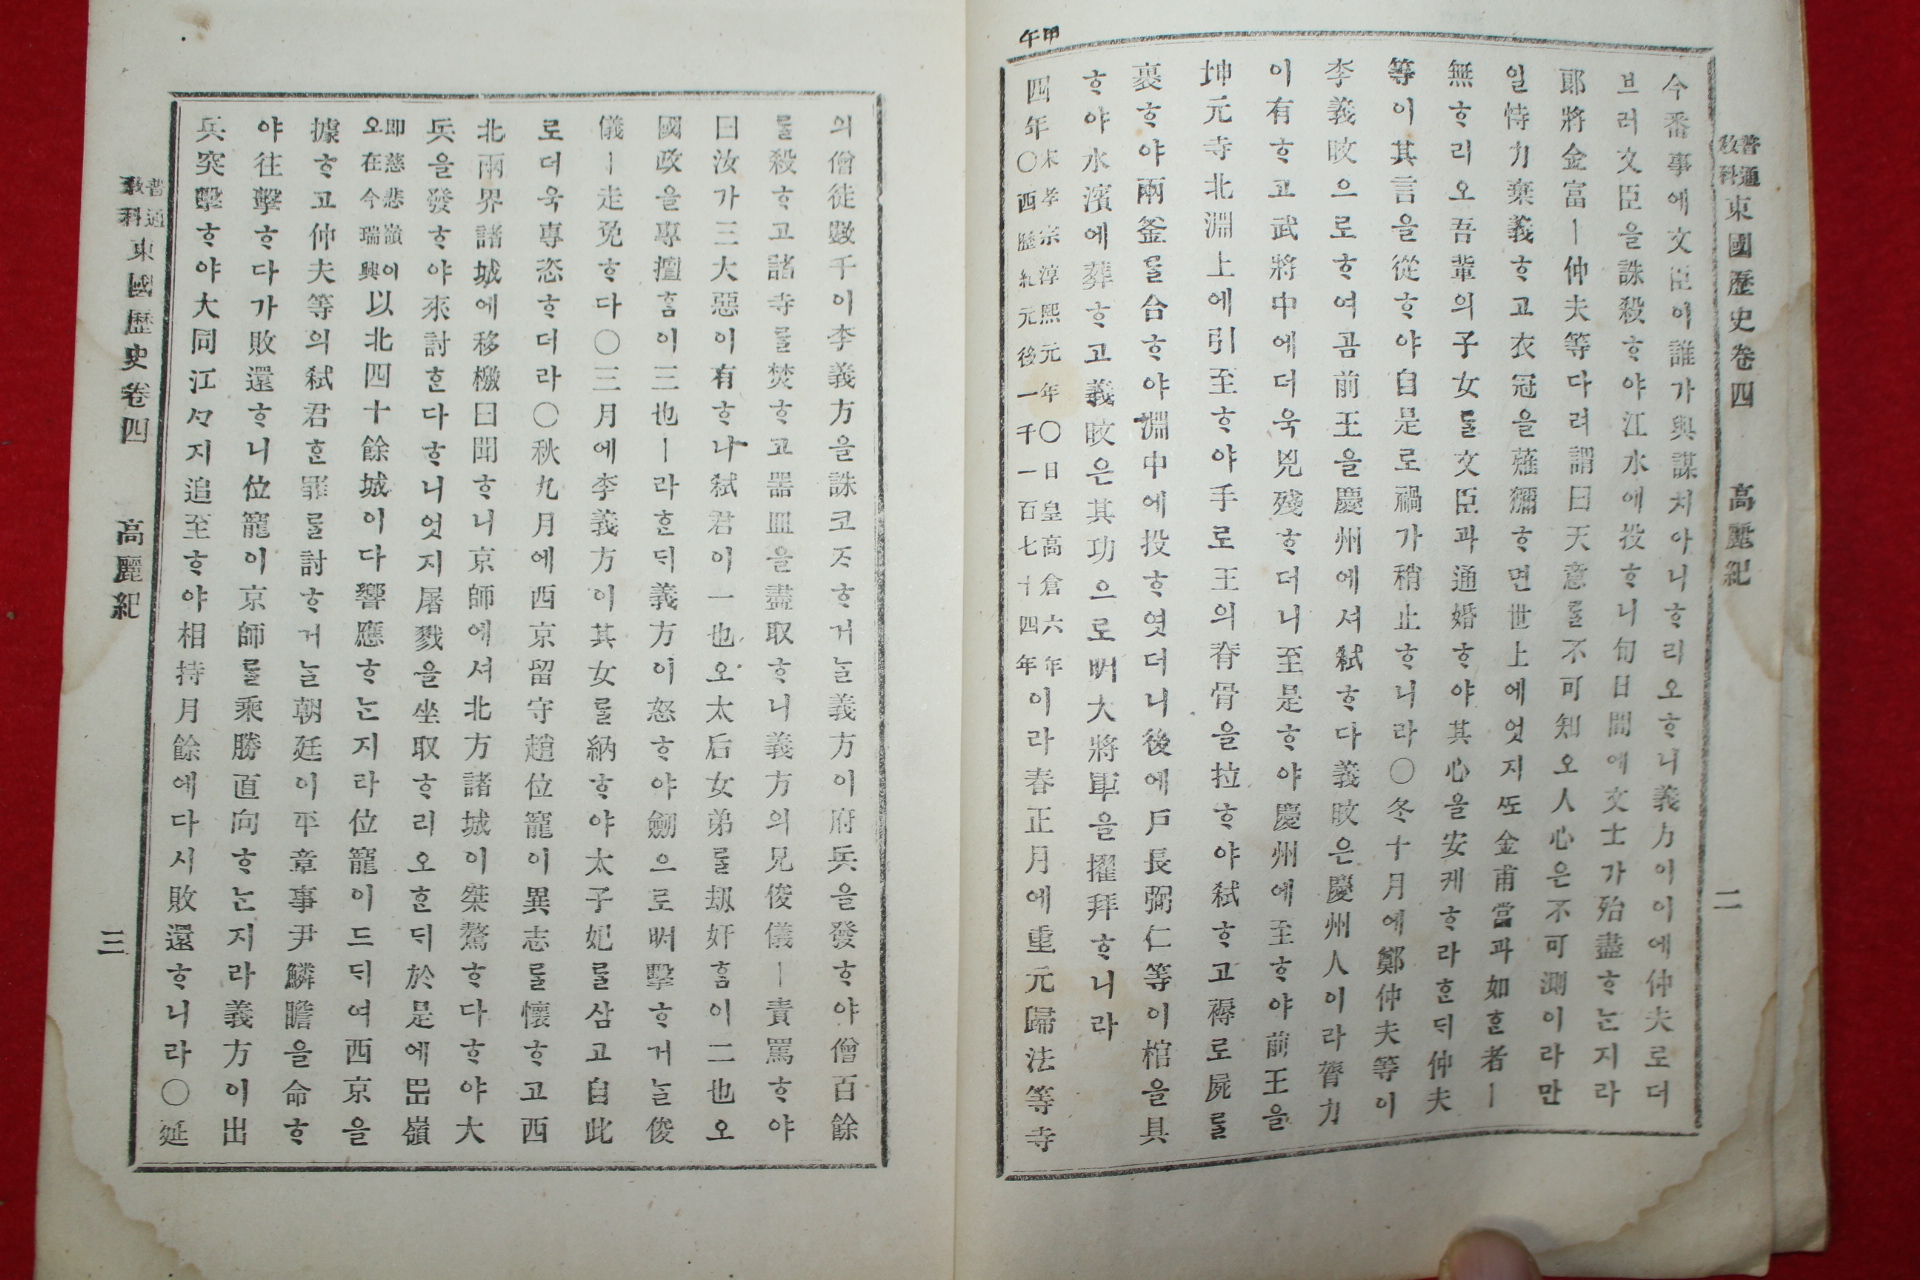 普通敎科 東國歷史卷四 高麗紀 二
今番事에文臣이誰가與謀치아니ᄒᆞ리오ᄒᆞ니義方이이에仲夫로더
브러文臣을誅殺ᄒᆞ야江水에投ᄒᆞ니旬日間에文士가殆盡ᄒᆞᄂᆞᆫ지라
郞將金富ㅣ仲夫等다려謂曰天意를不可知오人心은不可測이라만
일恃力棄義ᄒᆞ고衣冠을薙獮ᄒᆞ면世上에엇지ᄯᅩ金甫當과如ᄒᆞᆫ者ㅣ
無ᄒᆞ리오吾輩의子女를文臣과通婚ᄒᆞ야其心을安케ᄒᆞ라ᄒᆞᆫᄃᆡ仲夫
等이其言을從ᄒᆞ야自是로禍가稍止ᄒᆞ니라〇冬十月에鄭仲夫等이
李義旼으로ᄒᆞ여곰前王을慶州에셔弑ᄒᆞ다義旼은慶州人이라膂力
이有ᄒᆞ고武將中에더욱兇殘ᄒᆞ더니至是ᄒᆞ야慶州에至ᄒᆞ야前王을
坤元寺北淵上에引至ᄒᆞ야手로王의脊骨을拉ᄒᆞ야弑ᄒᆞ고褥로屍를
裹ᄒᆞ야兩釜를合ᄒᆞ야淵中에投ᄒᆞ엿더니後에戶長弼仁等이棺을具
ᄒᆞ야水濱에葬ᄒᆞ고義旼은其功으로明大將軍을擢拜ᄒᆞ니라
甲午
四年〇宋孝宗淳熙元年〇日皇高倉六年西曆紀元後一千一百七十四年이라春正月에重元歸法等寺
의僧徒數千이李義方을誅코ᄌᆞᄒᆞ거ᄂᆞᆯ義方이府兵을發ᄒᆞ야僧百餘
를殺ᄒᆞ고諸寺를焚ᄒᆞ고器皿을盡取ᄒᆞ니義方의兄俊儀ㅣ責罵ᄒᆞ야
曰汝가三大惡이有ᄒᆞ나弑君이一也오太后女弟를劫奸홈이二也오
國政을專擅홈이三也ㅣ라ᄒᆞᆫᄃᆡ義方이怒ᄒᆞ야劒으로明擊ᄒᆞ거ᄂᆞᆯ俊
儀ㅣ走免ᄒᆞ다〇三月에李義方이其女를納ᄒᆞ야太子妃를삼고自此
로더욱專恣ᄒᆞ더라〇秋九月에西京留守趙位寵이異志를懷ᄒᆞ고西
北兩界諸城에移檄曰聞ᄒᆞ니京師에셔北方諸城이桀驁ᄒᆞ다ᄒᆞ야大
兵을發ᄒᆞ야來討ᄒᆞᆫ다ᄒᆞ니엇지屠戮을坐取ᄒᆞ리오ᄒᆞᆫᄃᆡ於是에岊嶺
卽慈悲嶺이오在今瑞興以北四十餘城이다響應ᄒᆞᄂᆞᆫ지라位寵이드ᄃᆡ여西京을
據ᄒᆞ고仲夫等의弑君ᄒᆞᆫ罪를討ᄒᆞ거ᄂᆞᆯ朝廷이平章事尹鱗瞻을命ᄒᆞ
야往擊ᄒᆞ다가敗還ᄒᆞ니位寵이京師를乘勝直向ᄒᆞᄂᆞᆫ지라義方이出
兵突擊ᄒᆞ야大同江ᄭᆞ지追至ᄒᆞ야相持月餘에다시敗還ᄒᆞ니라〇延
普通敎科 東國歷史卷四 高麗紀 三